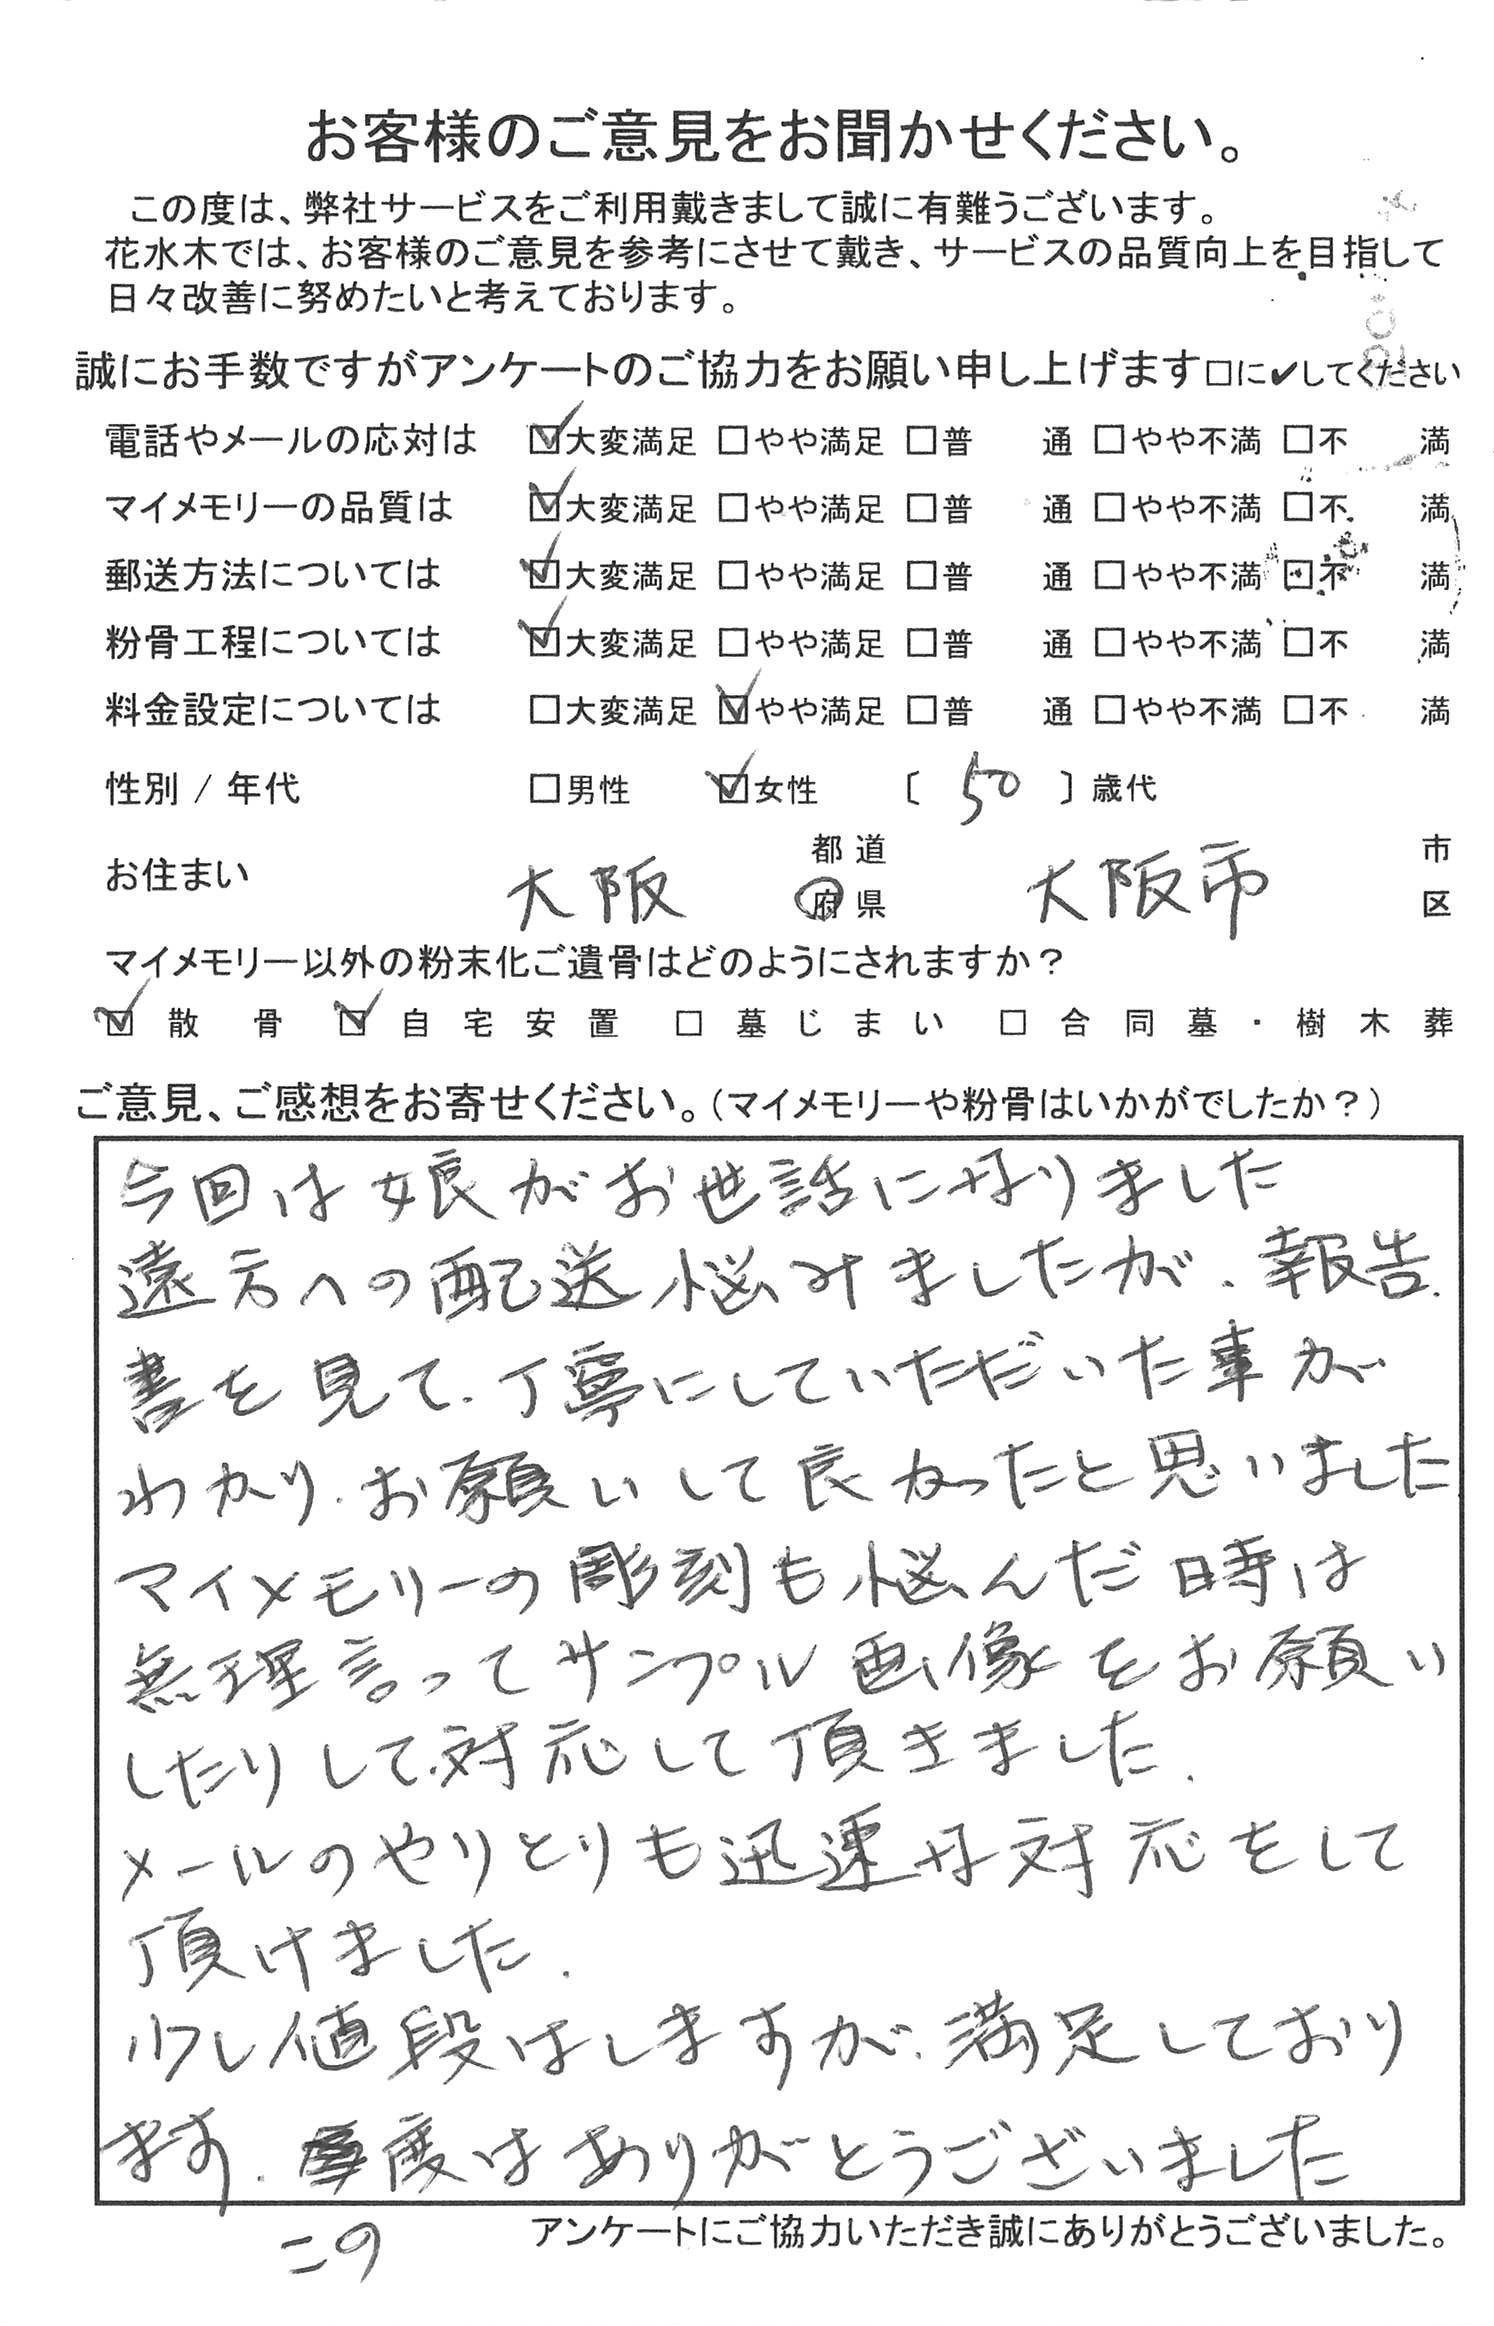 お客様のご意見をお聞かせください。
この度は、弊社サービスをご利用戴きまして誠に有難うございます。
花水木では、お客様のご意見を参考にさせて戴き、サービスの品質向上を目指して
日々改善に努めたいと考えております。
誠にお手数ですがアンケートのご協力をお願い申し上げます□に✔してください
電話やメールの応対は ☑大変満足 □やや満足 □普 通 □やや不満 □不 満
マイメモリーの品質は ☑大変満足 □やや満足 □普 通 □やや不満 □不 満
郵送方法については ☑大変満足 □やや満足 □普 通 □やや不満 □不 満
粉骨工程については ☑大変満足 □やや満足 □普 通 □やや不満 □不 満
料金設定については □大変満足 ☑やや満足 □普 通 □やや不満 □不 満
性別 / 年代 □男性 ☑女性 〔 50 〕歳代
お住まい 大阪 都道府県 大阪市 市区
マイメモリー以外の粉末化ご遺骨はどのようにされますか？
☑散骨 ☑自宅安置 □墓じまい □合同墓・樹木葬
ご意見、ご感想をお寄せください。（マイメモリーや粉骨はいかがでしたか？）
今回は娘がお世話になりました
遠方への配送悩みましたが、報告
書を見て、丁寧にしていただいた事が
わかり、お願いして良かったと思いました
マイメモリーの彫刻も悩んだ時は
無理言ってサンプル画像をお願い
したりして、対応して頂きました。
メールのやりとりも迅速な対応をして
頂けました。
少し値段はしますが、満足しており
ます。度はありがとうございました
この
アンケートにご協力いただき誠にありがとうございました。